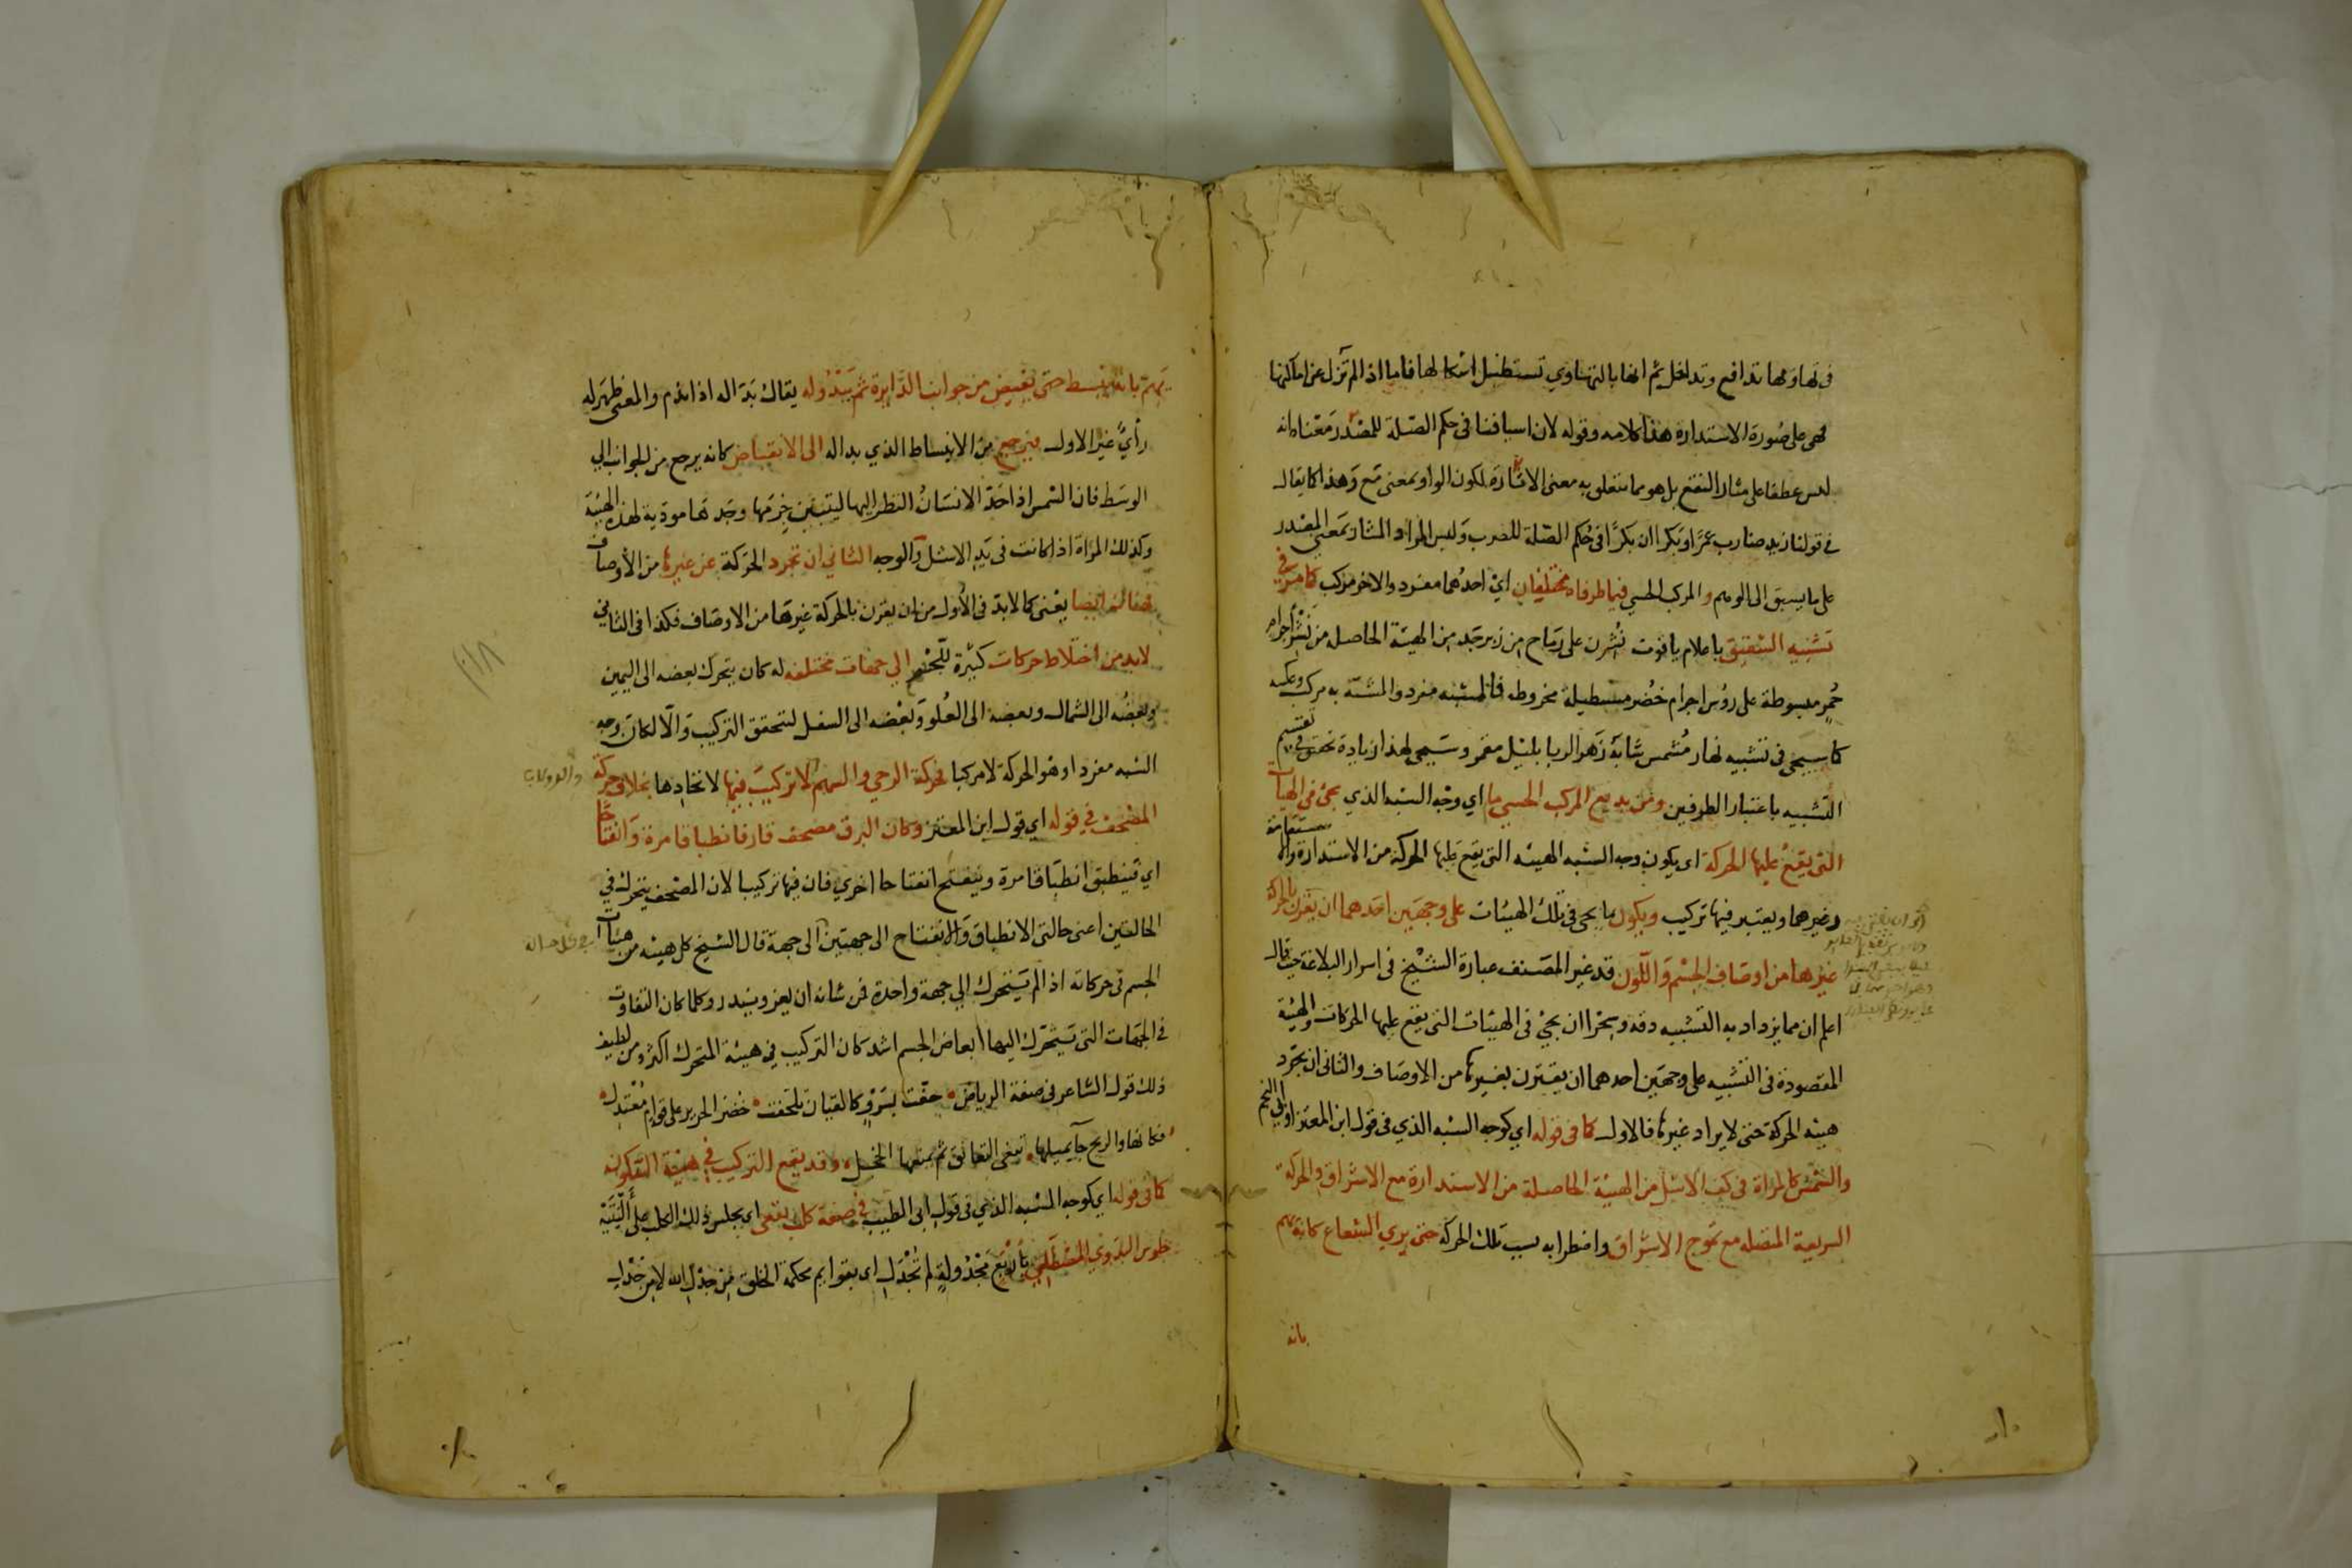 في تهاويها تدافع وتداخل ثم انها بالتهاوي تستطيل اشكالها فاما اذا لم تزل عن اماكنها
فهي على صورة الاستدارة هذا كلامه وقوله لان اسيافنا في حكم الصلة للمصدر معناه انه
ليس عطفا على مثار النقع بل هو مما يتعلق به معنى الاثارة لكون الواو بمعنى مع وهذا كما يقال
في قولنا زيد ضارب عمرا وبكرا ان بكرا في حكم الصلة للضرب وليس المراد المثار بمعنى المصدر
على ما يسبق الى الوهم و المركب الحسي فيما طرفاه مختلفان اي احدهما مفرد والاخر مركب كما مر في
تشبيه الشقيق باعلام ياقوت نشرن على رماح من زبرجد من الهيئة الحاصلة من نشر اجرام
حمر مبسوطة على رؤس اجرام خضر مستطيلة مخروطه فالمشبه مفرد والمشبه به مركب وعكسه
كما سيجئ في تشبيه نهار مشمس شابه زهر الربا بليل مقمر وسيجى لهذا زيادة تحقق في تقسيم
التشبيه باعتبار الطرفين ومن بديع المركب الحسي ما اي وجه الشبه الذي يجئ في الهيآت
التي يقع عليها الحركة اي يكون وجه الشبه الهيئه التي يقع عليها الحركة من الاستدارة والاستقامة
وغيرهما ويعتبر فيها تركيب ويكون ما يجى في تلك الهيئات على وجهين احدهما ان يقرن بالحركة
غيرها من اوصاف الجسم واللون قد غير المصنف عبارة الشيخ في اسرار البلاغة حيث قال
اعلم ان مما يزداد به التشبيه دقه وسحرا ان يجئ في الهيئات التي يقع عليها الحركات والهيئة
المقصودة في التشبيه على وجهين احدهما ان يقترن بغيرها من الاوصاف والثاني ان يجرد
هيئه الحركة حتى لا يراد غيرها فالاول كما في قوله اي كوجه الشبه الذي في قول ابن المعتز او ابي النجم
والشمس كالمراة في كف الاشل من الهيئة الحاصلة من الاستدارة مع الاشراق والحركة
السريعة المتصله مع تموج الاشراق واضطرابه بسبب تلك الحركة حتى يري الشعاع كانه يهم
بانه
يهم بانه ينبسط حتى يفيض من جوانب الدايرة ثم يبدو له يقال بدا له اذا ندم والمعنى ظهر له
رأي غير الاول فيرجع من الانبساط الذي بدا له الى الانقباض كانه يرجع من الجوانب الي
الوسط فان الشمس اذا احد الانسان النظر اليها ليتبين جرمها وجدتها مودية لهذه الهيئة
وكذلك المراة اذا كانت في يد الاشل والوجه الثاني ان تجرد الحركة عن غيرها من الأوصاف
فهنالك ايضا يعنى كما لابد في الأول من ان يقرن بالحركة غيرها من الاوصاف فكذا في الثاني
لابد من اختلاط حركات كثيرة للجسم الي جهات مختلفه له كان يتحرك بعضه الى اليمين
وبعضه الى الشمال وبعضه الى العلو وبعضه الى السفل ليتحقق التركيب والا لكان وجه
الشبه مفردا وهو الحركة لا مركبا فحركة الرحي والسهم لا تركيب فيها لاتحادها بخلاف حركة
المصحف في قوله اي قول ابن المعتز وكان البرق مصحف قار فانطباقا مرة وانفتاحا
اي فينطبق انطباقا مرة وينفتح انفتاحا اخري فان فيها تركيبا لان المصحف يتحرك في
الحالتين اعنى حالتي الانطباق والانفتاح الى جهتين الى جهة قال الشيخ كل هيئه من هيآت
الجسم في حركاته اذا لم يتحرك الي جهة واحدة فمن شانه ان يعز ويندر وكلما كان التفاوت
في الجهات التي يتحرك اليها ابعاض الجسم اشد كان التركيب في هيئة المتحرك اكثر ومن لطيف
ذلك قول الشاعر في صفة الرياض حفت بسرو كالقيان تلحفت خضر الحرير على قوام معتدل
فكانها والريح جآ يميلها تبغي التعانق ثم يمنعها الخجل وقد يقع التركيب في هيئة السكون
كما في قوله اي كوجه الشبه الذي في قول ابى الطيب في صفة كلب يقعى اي يجلس ذلك الكلب على أليتيه
جلوس البدوي المصطلي بأربع مجدولة لم تجدل اي بقوايم محكمة الخلق من جدل الله لا من جدل